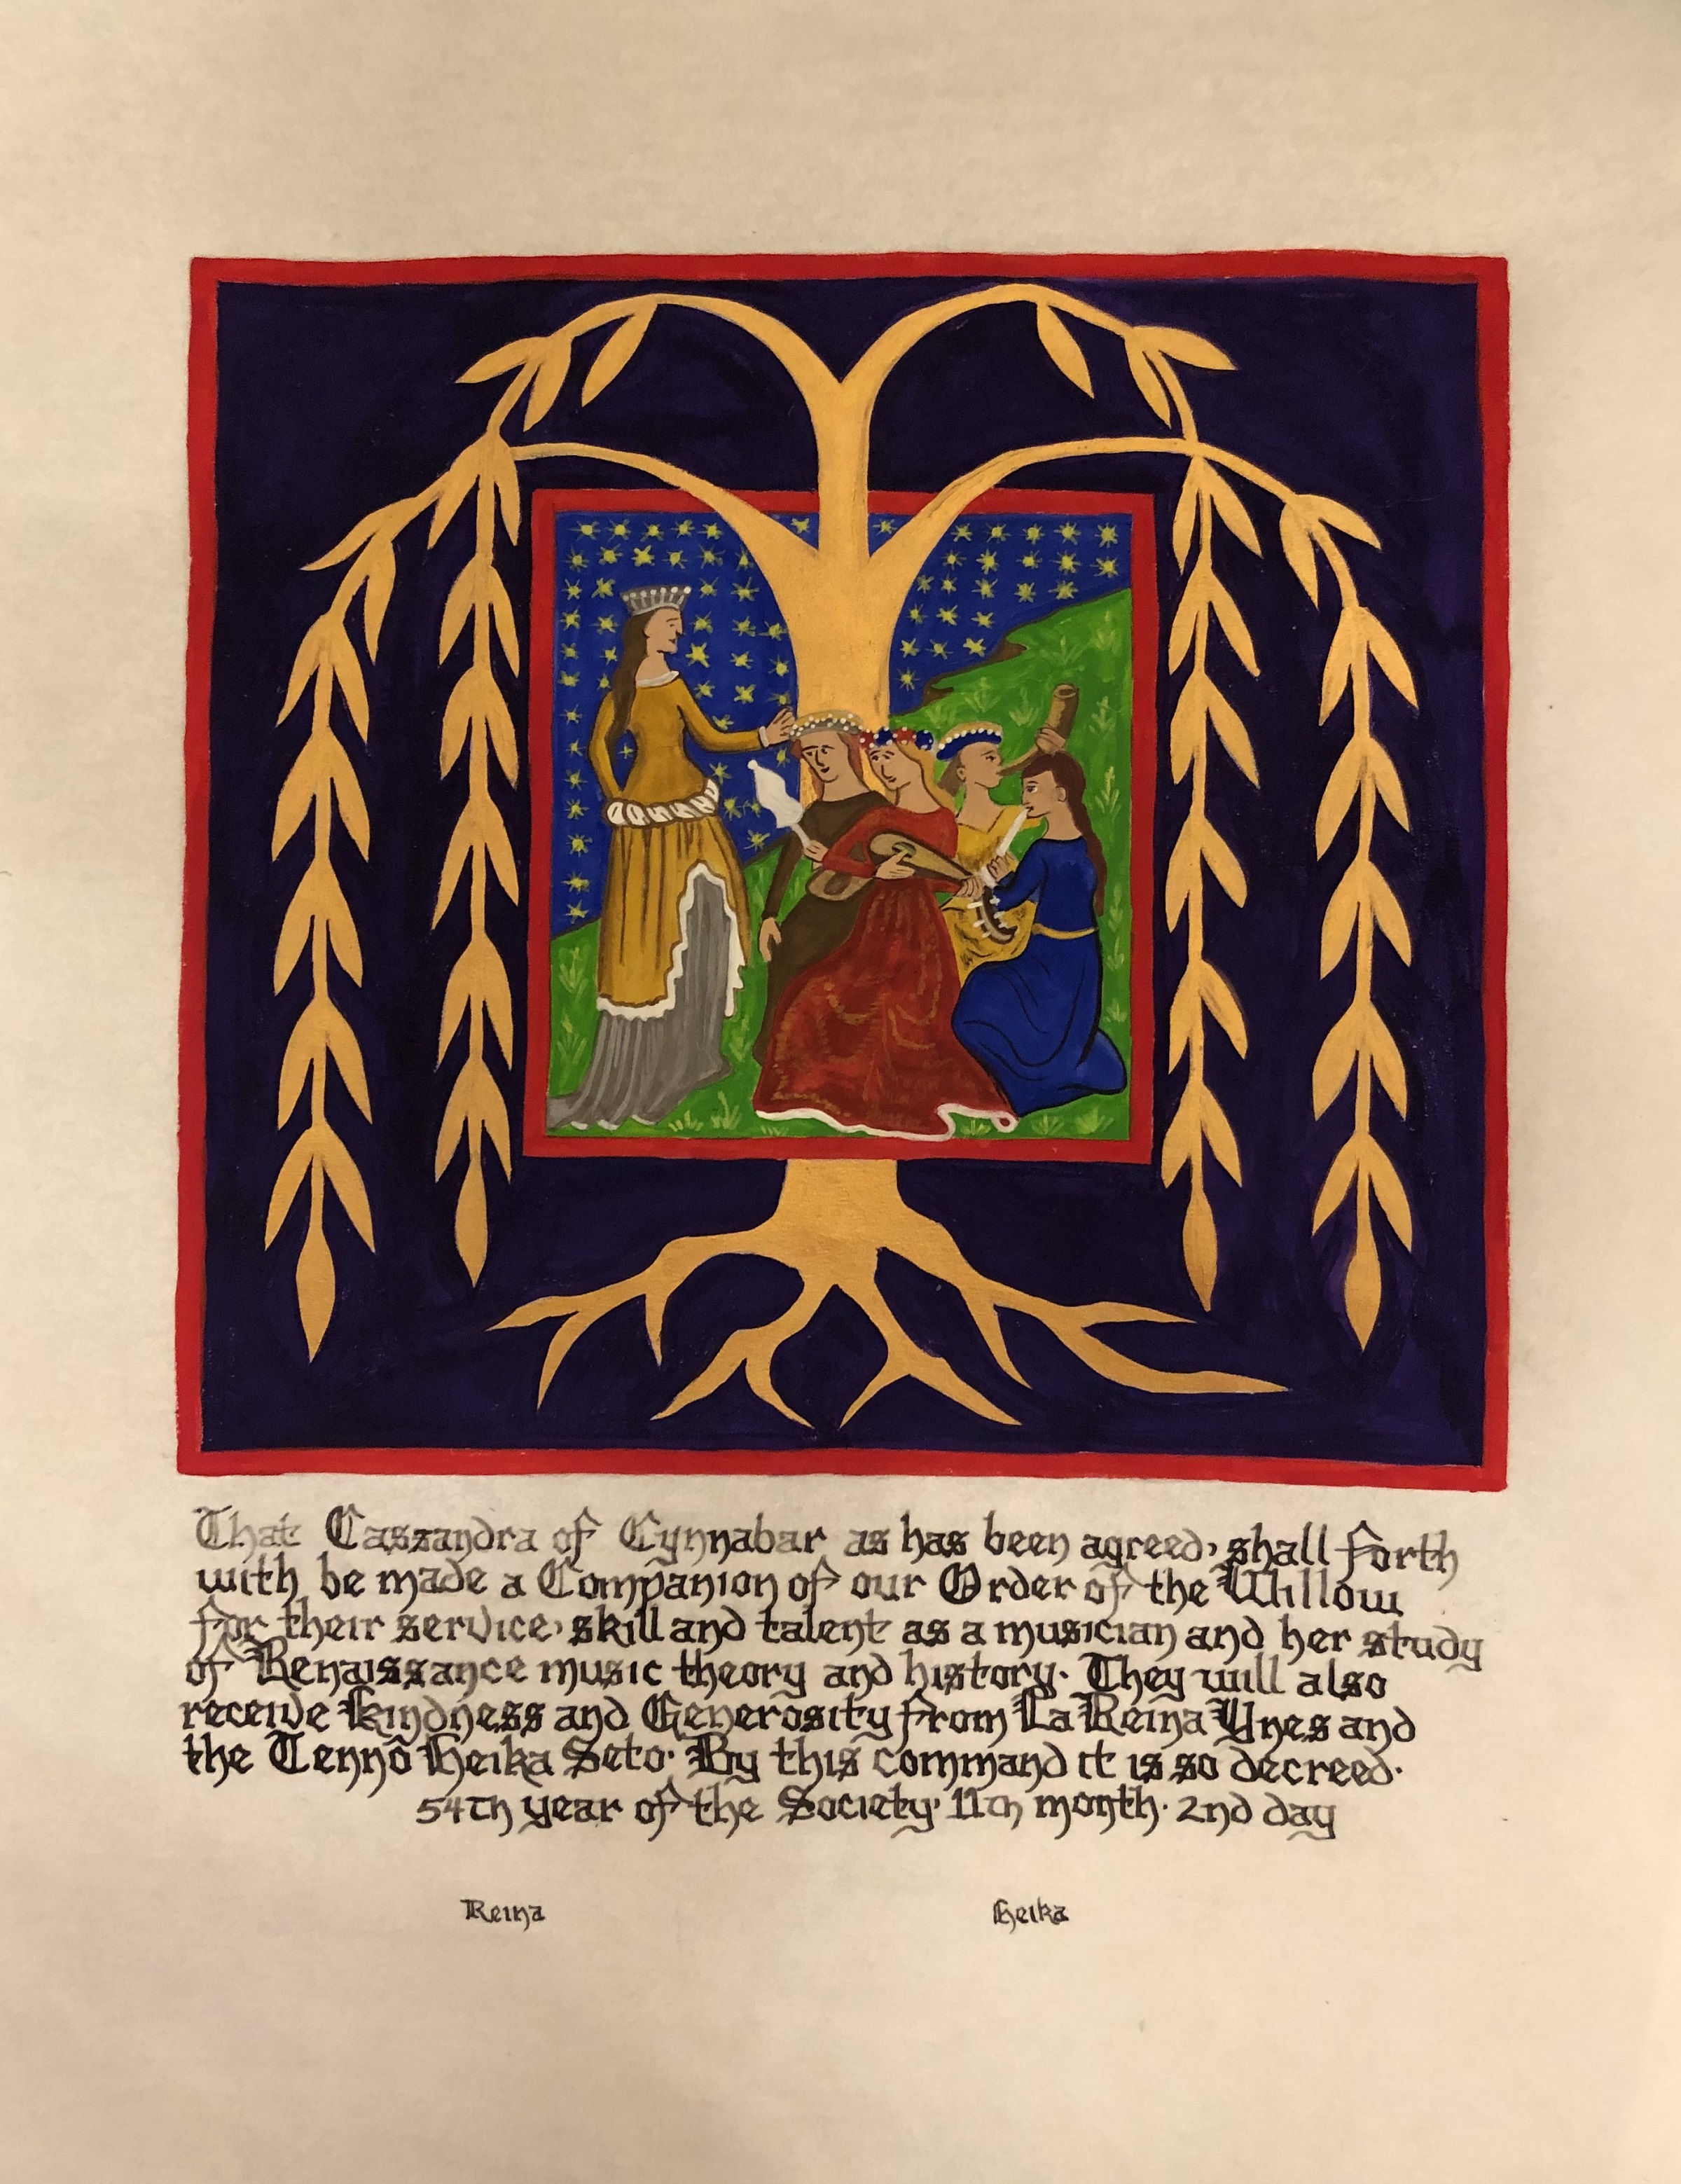 That Cassandra of Cynnabar as has been agreed, shall forth
with be made a Companion of our Order of the Willow
for their service, skill and talent as a musician and her study
of Renaissance music theory and history. They will also
receive Kindness and Generosity from La Reina Ynes and
the Tennō Heika Seto. By this command it is so decreed.
54th year of the Society. 11th month. 2nd day
Reina Heika